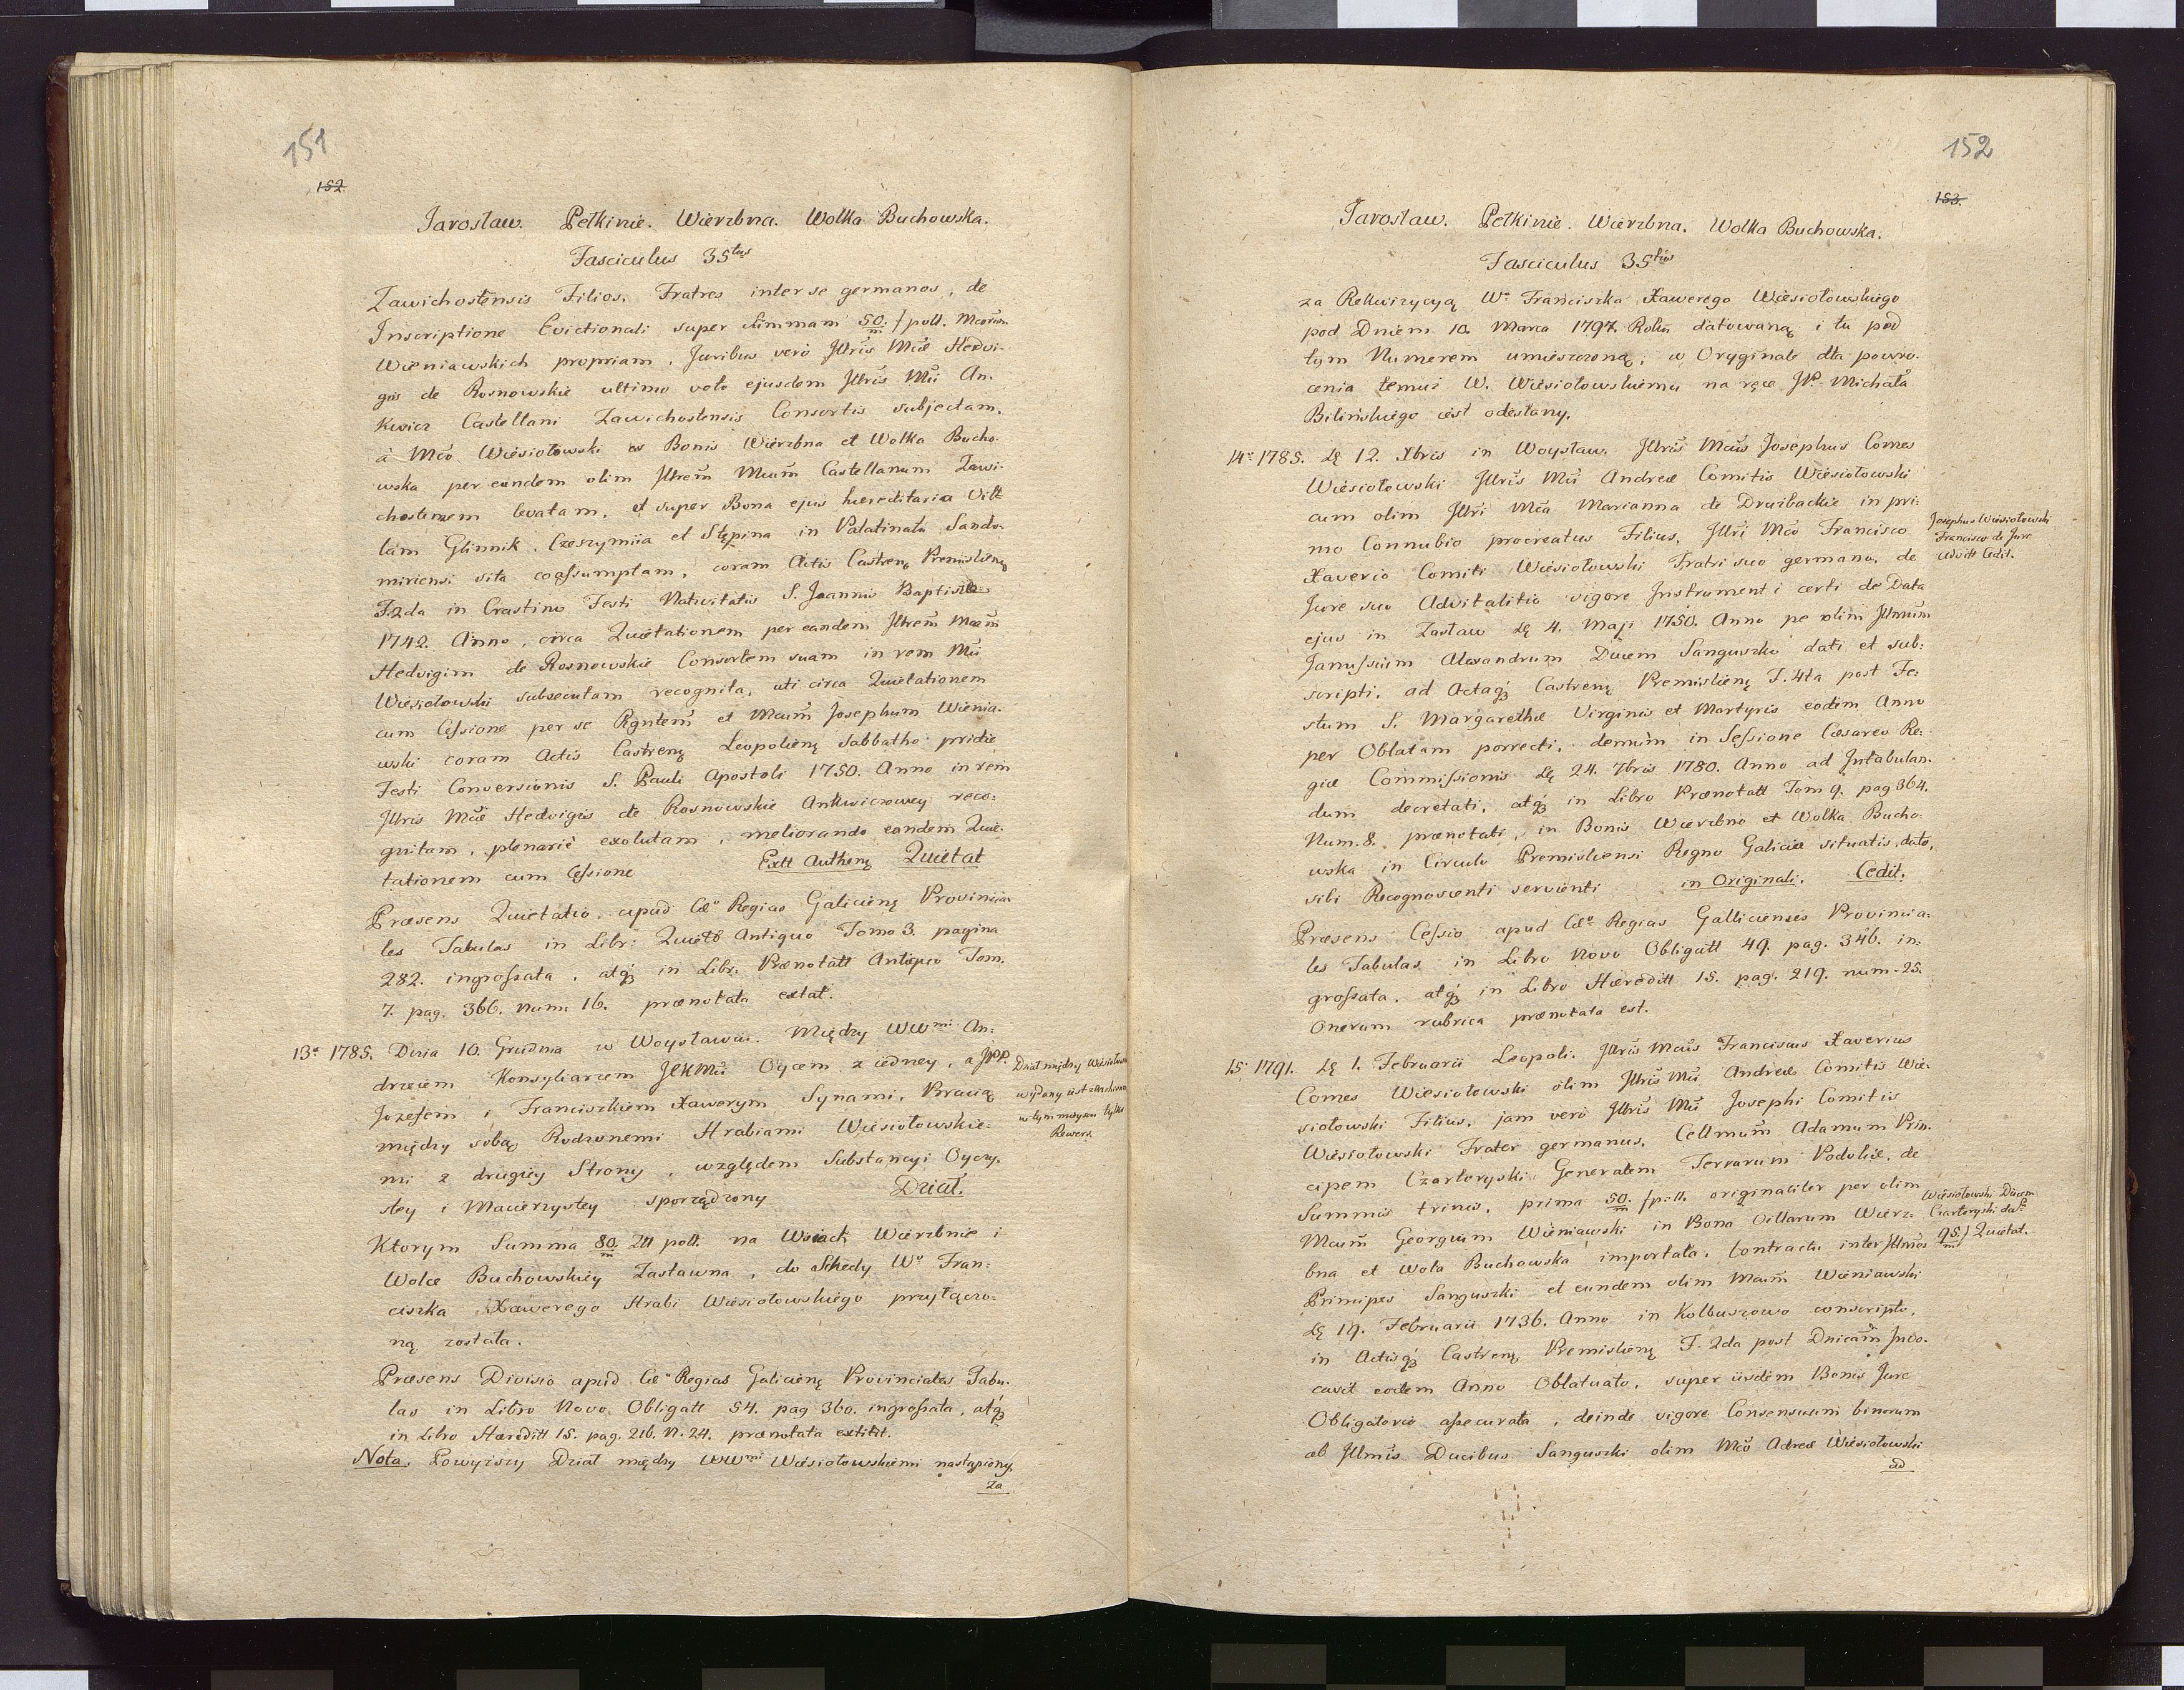 151
152
Jarosław. Pełkinie. Wierzbna. Wolka Buchowska.
Fasciculus 35tus
Zawichostensis Filios, Fratres inter se germanos, de
Inscriptione Evictionali super Summam 50/m f poll. Mcorum
Wieniawskich propriam, Juribus vero Jllris Mcæ Hedvi-
gis de Rosnowskie ultimo voto ejusdem Jllris Mci An-
kwicz Castellani Zawichostensis Consortis subjectam,
à Mco Wiesiołowski ex Bonis Wierzbna et Wolka Bucho-
wska per eundem olim Jllrem Mcum Castellanum Zawi-
chostensem levatam, et super Bona ejus hæreditaria Vill-
larum Glinnik, Czeszymiia et Stępina in Palatinatu Sando-
miriensi sita coassumptam, coram Actis Castren. Premislien.
F. 2da in Crastino Festi Nativitatis S. Joannis Baptistæ
1742. Anno, circa Quietationem per eandem Jllrem Mcam
Hedvigim de Rosnowskie Consortem suam in rem Mci
Wiesiołowski subsecutam recognita, uti circa Quietationem
cum Cessione per se Rgntem et Mcum Josephum Wienia-
wski coram Actis Castren. Leopolien. Sabbatho pridie
Festi Conversionis S. Pauli Apostoli 1750. Anno in rem
Jllris Mcæ Hedvigis de Rosnowskie Ankwiczowey reco-
gnitam, plenarie exolutam, meliorando eandem Quie-
tationem cum Cessione Extt Authen. Quietat
Præsens Quietatio, apud Cæo Regias Galicien. Provincia-
les Tabulas in Libr: Quiett Antiquo Tomo 3. pagina
282. ingrossata, atq3 in Libr. Prænotatt Antiquo Tom.
7. pag. 366. num: 16. prænotata extat.
13o 1785. Dnia 10. Grudnia w Woysławiu. Między WWmi An-
drzeiem Konsyliarzem JCKMci Oycem z iedney, a JPP.
Jozefem i Franciszkiem Xawerym Synami, Bracią
między sobą Rodzonemi Hrabiami Wiesiołowskie-
mi z drugiey Strony, względem Substancyi Oyczy-
stey i Macierzystey sporządzony Dział.
Dział między Wiesiołows
wydany iest z Archivum
w tym mieyscu tylko
Rewers.
Ktorym Summa 80/m Zll poll. na Wsiach Wierzbnie i
Wolce Buchowskiey Zastawna, do Schedy Wo Fran-
ciszka Xawerego Hrabi Wiesiołowskiego przyłączo-
ną została.
Præsens Divisio apud Cæo Regias Galicien. Provinciales Tabu-
las in Libro Novo Obligatt 54. pag 360. ingrossata, atq3
in Libro Hæreditt 15. pag. 216. N. 24. prænotata extitit.
Nota. Powyższy Dział między WWmi Wiesiołowskiemi nastąpiony,
za
152
153.
Jarosław. Pełkinie. Wierzbna. Wolka Buchowska.
Fasciculus 35tus
za Rekwizycyą Wo Franciszka Xawerego Wiesiołowskiego
pod Dniem 10. Marca 1797. Roku datowaną i tu pod
tym Numerem umieszczoną, w Oryginale dla powro-
cenia temuż W. Wiesiołowskiemu na ręce JP. Michała
Bilińskiego iest odesłany.
14o 1785. Dę 12. Xbris in Woysław. Jllris Mcus Josephus Comes
Wiesiołowski Jllris Mci Andreæ Comitis Wiesiołowski
cum olim Jllri Mca Marianna de Druzbackie in pri-
mo Connubio procreatus Filius, Jllri Mco Francisco
Xaverio Comiti Wiesiołowski Fratri suo germano, de
Jure suo Advitalitio vigore Instrumenti certi de Data
ejus in Zasław Dę 4. Maji 1750. Anno pe olim Jllmum
Janussium Alexandrum Ducem Sanguszko dati et sub-
scripti, ad Actaq3 Castren. Premislien. F. 4ta post Fe-
stum S. Margarethæ Virginis et Martyris eodem Anno
per Oblatam porrecti, demum in Sessione Cæsareo Re-
giæ Commissionis Dę 24. 7bris 1780. Anno ad Intabulan-
dum decretati, atq3 in Libro Prænotatt Tom 9. pag 364.
Num. 8. prænotati, in Bonis Wierzbno et Wolka Bucho-
wska in Circulo Premisliensi Regno Galiciæ situatis, dato,
sibi Recognoscenti servienti in Originali. Cedit.
Josephus Wiesiołowski
Francisco de Jure
advit Cedit.
Præsens Cessio apud Cæo Regias Gallicienses Provincia-
les Tabulas in Libro Novo Obligatt 49. pag. 346. in-
grossata, atq3 in Libro Hæreditt 15. pag. 219. num. 25.
Onerum rubrica prænotata est.
15o 1791. Dę 1. Februarii Leopoli. Jllris Mcus Franciscus Xaverius
Comes Wiesiołowski olim Jllris Mci Andreæ Comitis Wie-
siołowski Filius, jam vero Jllris Mci Josephi Comitis
Wiesiołowski Frater germanus, Cellmum Adamum Prin-
cipem Czartoryski Generalem Terrarum Podoliæ, de
Summis trinis, prima 50/m f poll. originaliter per olim
Mcum Georgium Wieniawski in Bona Villarum Wierz-
bna et Wola Buchowska importata, Contractu inter Jllmos
Principes Sanguszki et eundem olim Mcum Wieniawski
Dę 19. Februarii 1736. Anno in Kolbuszowa conscripto,
in Actisq3 Castren. Premislien. F. 2da post Dnicam Invo-
cavit eodem Anno Oblatuato, super iisdem Bonis Jure
Obligatorio assecurata, deinde vigore Consensuum binorum
ab Jllmis Ducibus Sanguszki olim Mco Adreæ Wiesiołowski
ad
Wiesiołowski Ducem
Czartoryski de
95/m f Quietat.